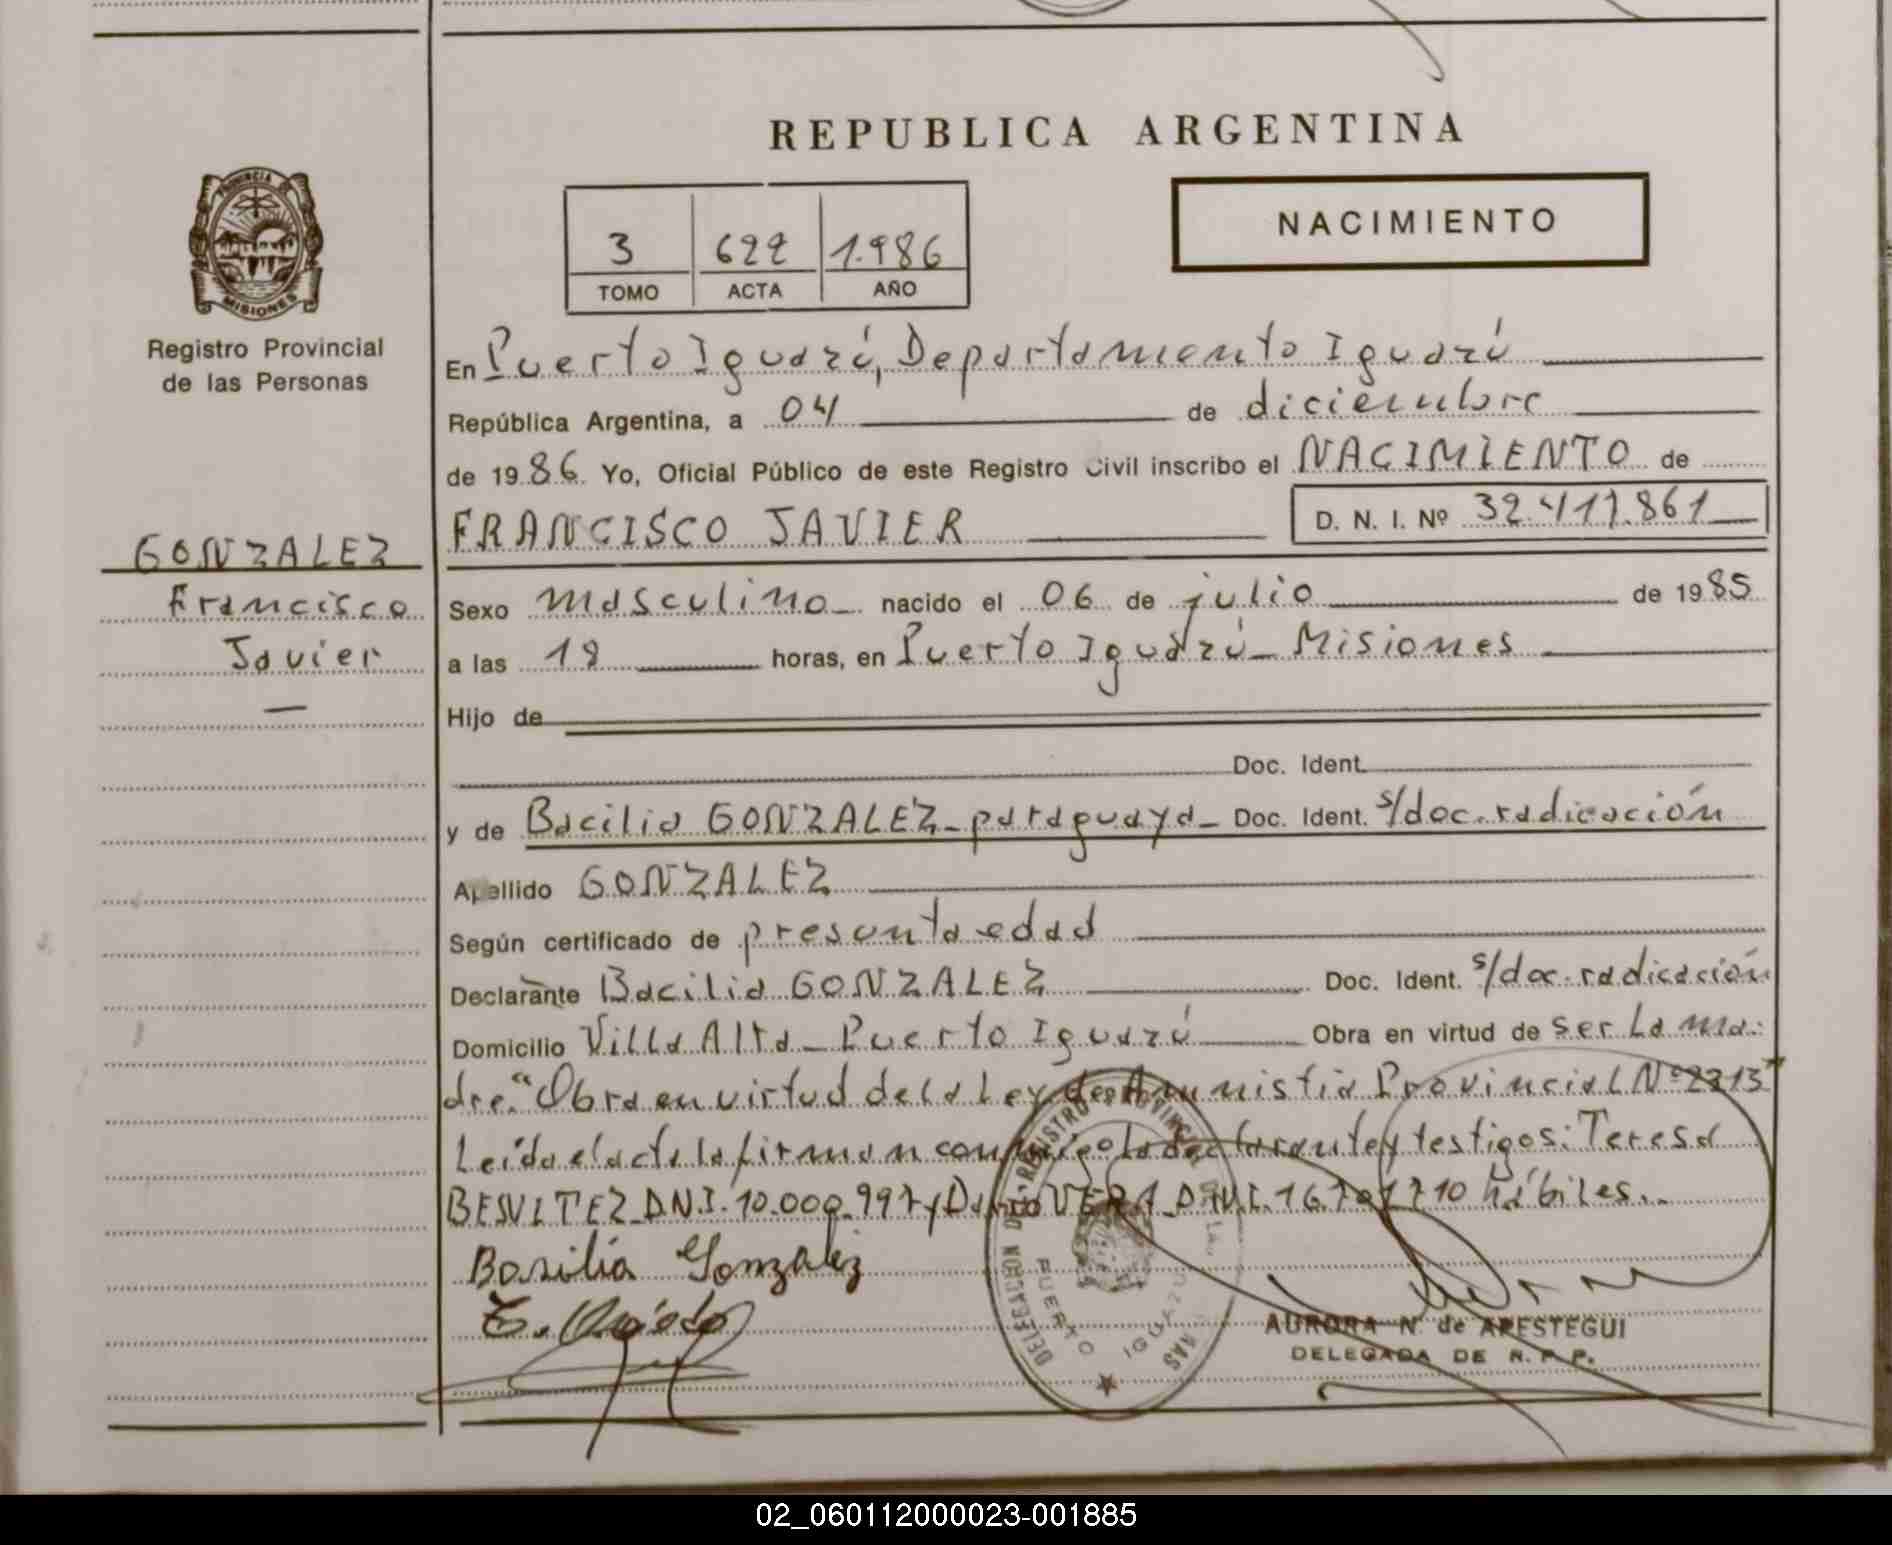 REPUBLICA ARGENTINA
PROVINCIA DE
MISIONES
Registro Provincial
de las Personas
3 622 1.986
TOMO ACTA AÑO
NACIMIENTO
En Puerto Iguazú, Departamento Iguazú
República Argentina, a 04 de diciembre
de 1986 Yo, Oficial Público de este Registro Civil inscribo el NACIMIENTO de
FRANCISCO JAVIER D. N. I. Nº 32.411.861
GONZALEZ
Francisco
Javier
Sexo masculino nacido el 06 de julio de 1985
a las 18 horas, en Puerto Iguazú - Misiones
Hijo de
Doc. Ident.
y de Bacilia GONZALEZ - paraguaya - Doc. Ident. s/doc. radicación
Apellido GONZALEZ
Según certificado de presunta edad
Declarante Bacilia GONZALEZ Doc. Ident. s/doc. radicación
Domicilio Villa Alta - Puerto Iguazú Obra en virtud de ser la ma-
dre. "Obra en virtud de la Ley de Amnistia Provincial Nº 2313"
Leída el acta la firman conmigo la declarante y testigos: Teresa
BESULTEZ D.N.I. 10.000.997 y VERA D.N.I. hábiles.
Basilia Gonzalez
DELEGACION REGISTRO PROVINCIAL DE LAS
PUERTO IGUAZU
AURORA N. de APESTEGUI
DELEGADA DE R. P. P.
02_060112000023-001885